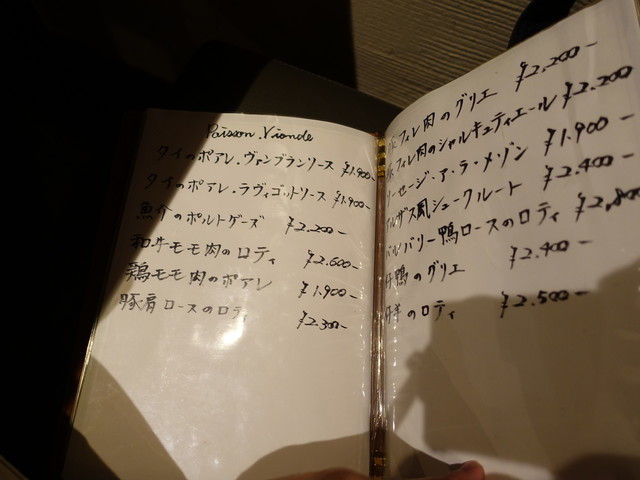 Poisson. Viande
タイのポアレ・ヴァンブランソース ¥1.900-
タイのポアレ・ラヴィゴットソース ¥1.900-
魚介のポルトゲーズ ¥2.200-
和牛モモ肉のロティ ¥2.600-
鶏モモ肉のポアレ ¥1.900-
豚肩ロースのロティ ¥2.300-
フィレ肉のグリエ ¥2.200-
フィレ肉のシャルキュティエール ¥2.200
ソーセージ・ア・ラ・メゾン ¥1.900-
アルザス風シュークルート ¥2.400-
バルバリー鴨ロースのロティ ¥2,800
鴨のグリエ ¥2.400-
羊のロティ ¥2.500-